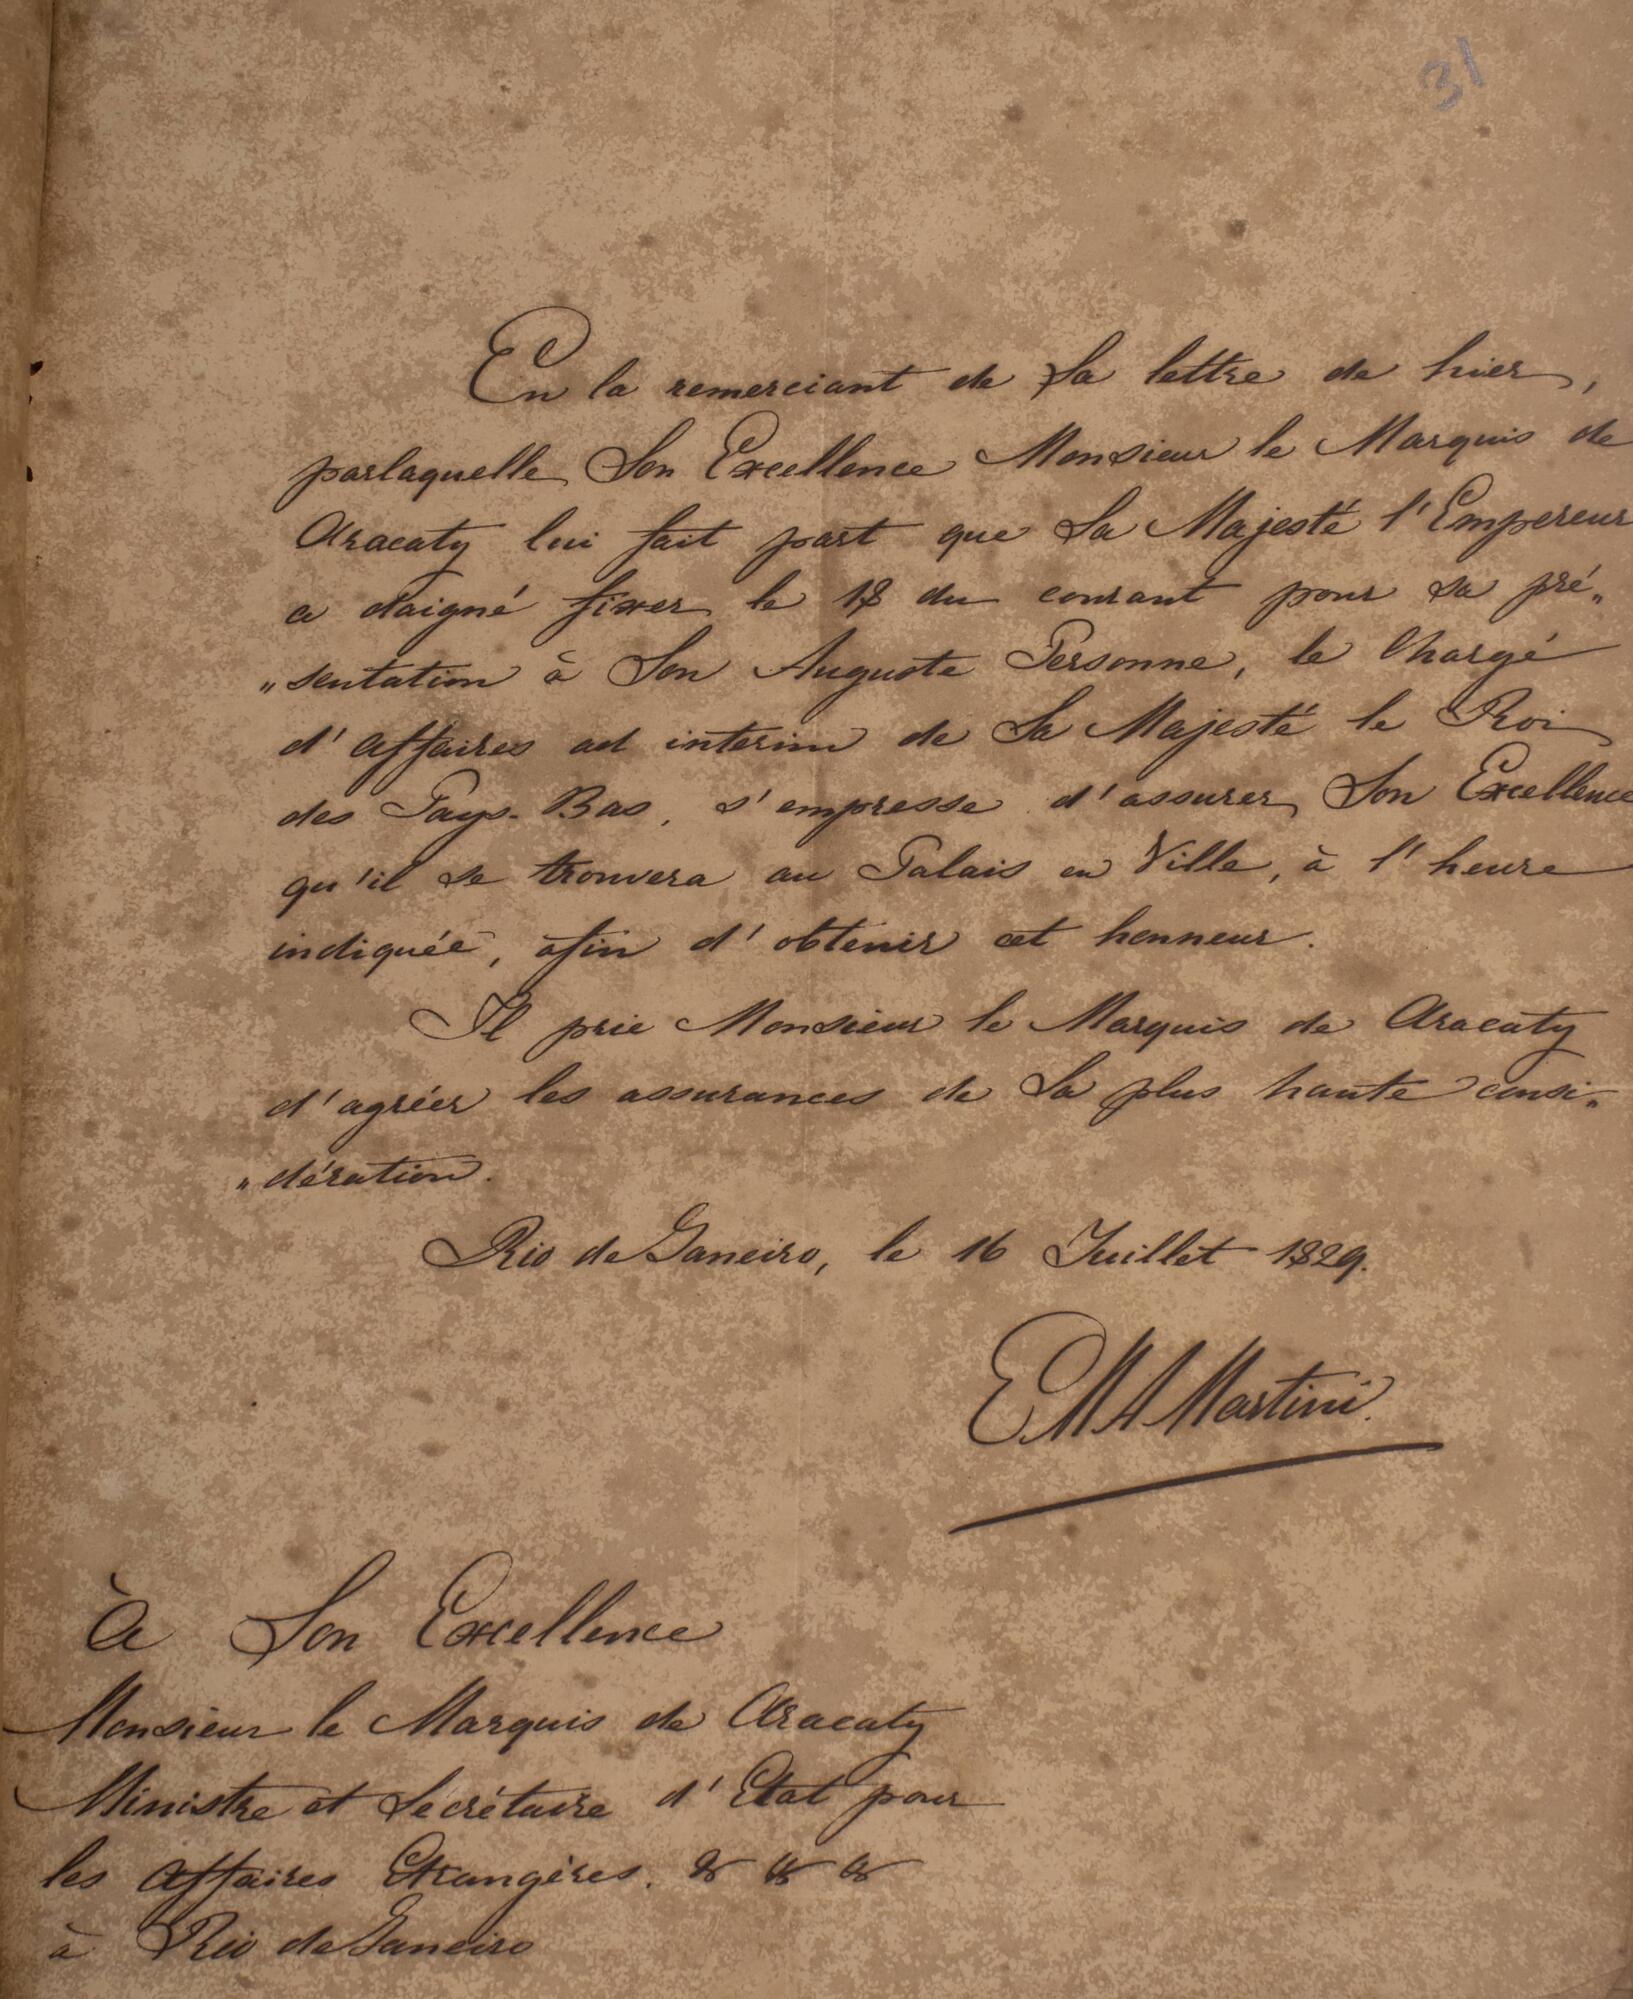 31
En la remerciant de Sa lettre de hier,
parlaquelle Son Excellence Monsieur le Marquis de
Aracaty lui fait part que Sa Majesté l'Empereur
a daigné fixer le 18 du courant pour sa pré„
„sentation à Son Auguste Personne, le Chargé
d'affaires ad interim de Sa Majesté le Roi
des Pays-Bas, s'empresse d'assurer Son Excellence
qu'il se trouvera au Palais en Ville, à l'heure
indiquée, afin d'obtenir cet honneur.
Il prie Monsieur le Marquis de Aracaty
d'agréer les assurances de Sa plus haute consi„
„dération.
Rio de Janeiro, le 16 Juillet 1829.
EMAMartini.
à Son Excellence
Monsieur le Marquis de Aracaty
Ministre et Secrétaire d'Etat pour
les Affaires Etrangères. & & &
à Rio de Janeiro